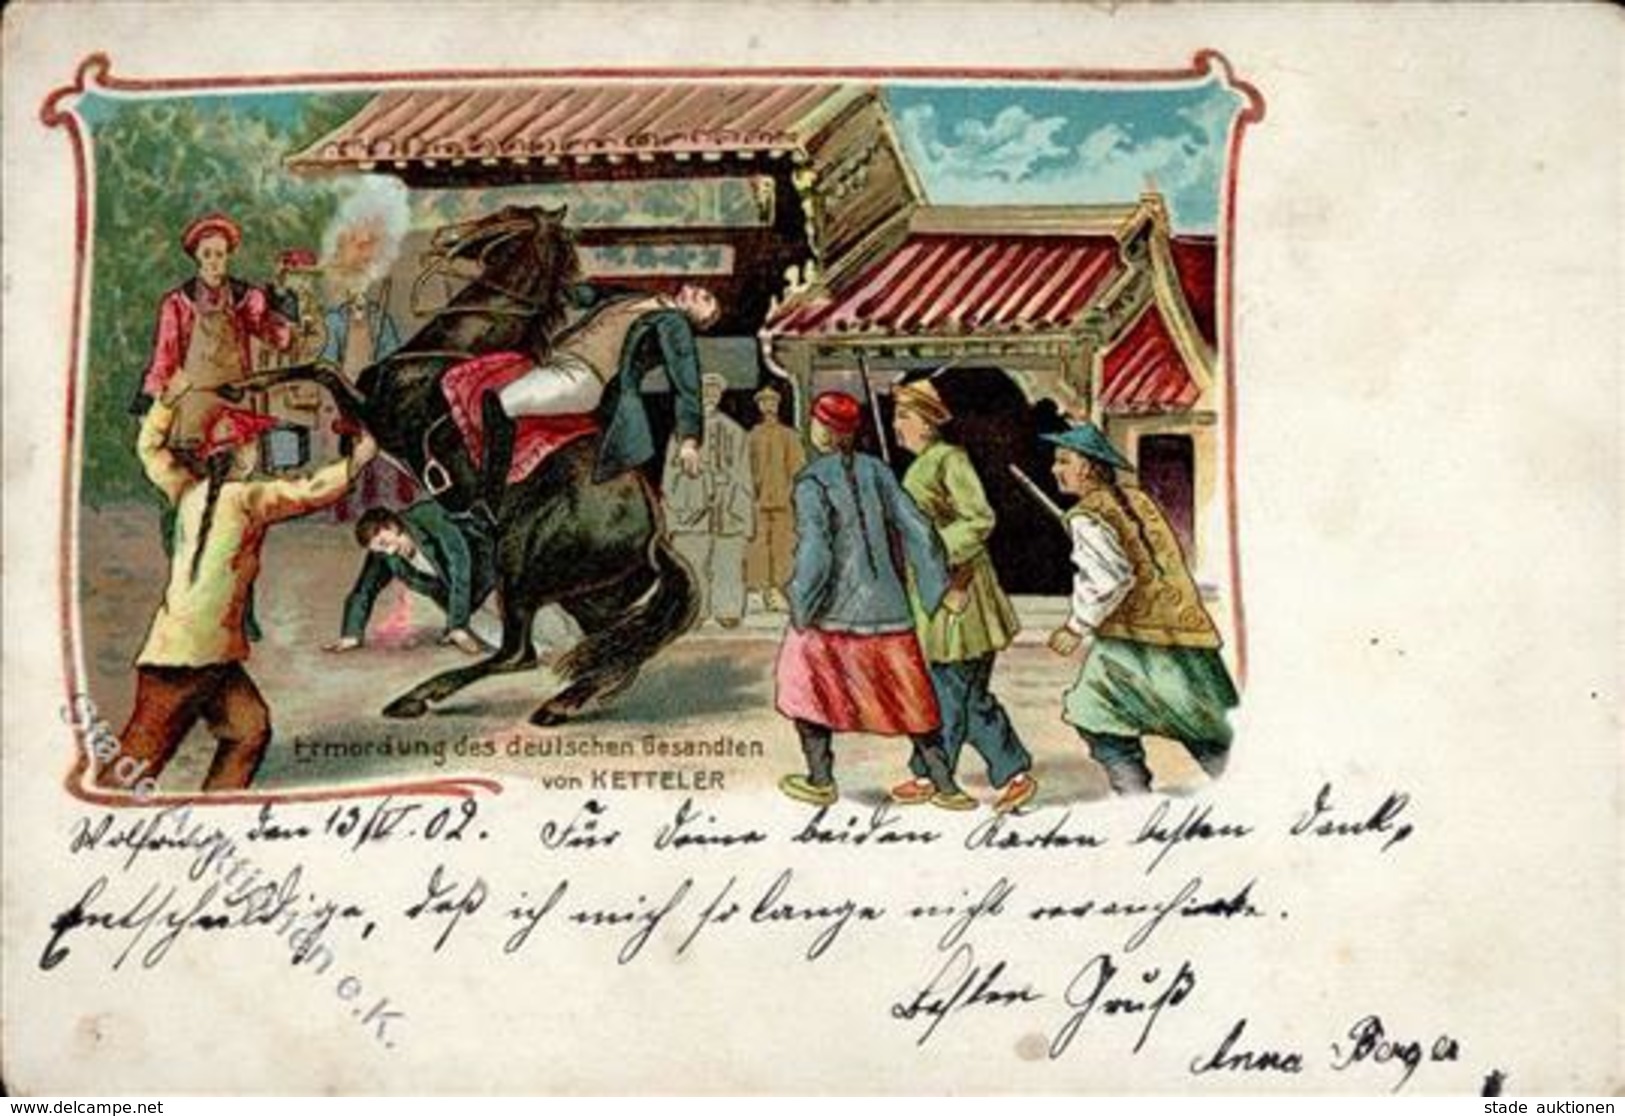 Ermordung des deutschen Gesandten
von KETTELER
den 13/IV. 02. Für Deine beiden Karten besten Dank,
Entschuldige, daß ich mich so lange nicht revanchirte.
Besten Gruß
Anna Berger
www.delcampe.net
stade auktionen